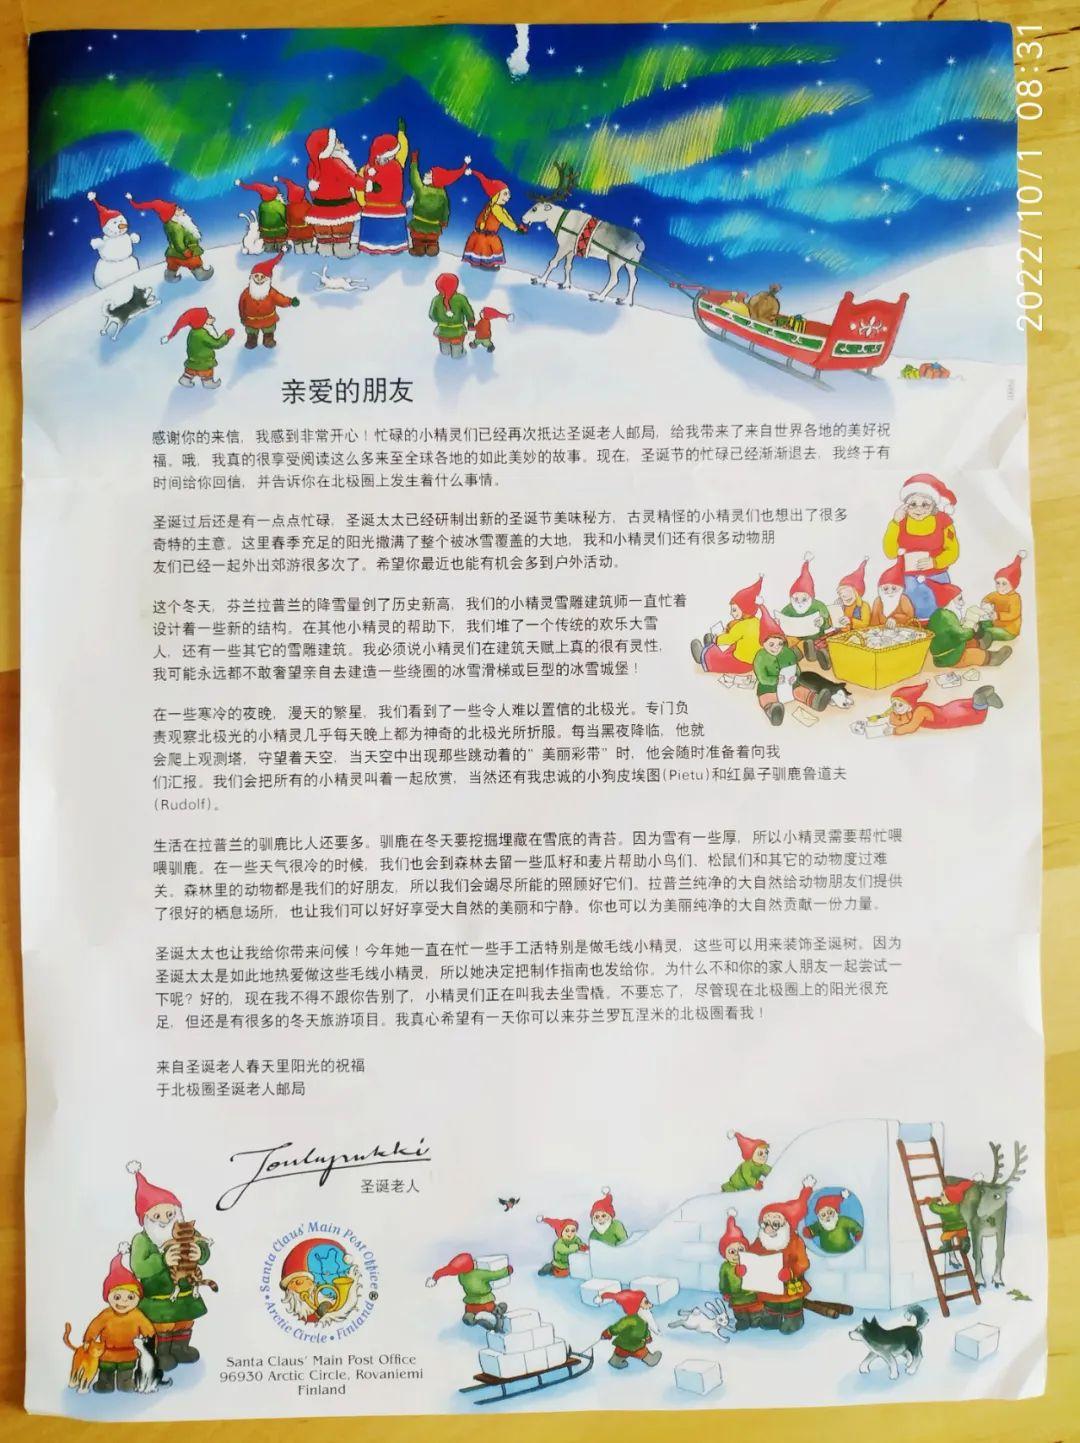 2022/10/1 08:31
亲爱的朋友
感谢你的来信，我感到非常开心！忙碌的小精灵们已经再次抵达圣诞老人邮局，给我带来了来自世界各地的美好祝
福。哦，我真的很享受阅读这么多来至全球各地的如此美妙的故事。现在，圣诞节的忙碌已经渐渐退去，我终于有
时间给你回信，并告诉你在北极圈上发生着什么事情。
圣诞过后还是有一点点忙碌，圣诞太太已经研制出新的圣诞节美味秘方，古灵精怪的小精灵们也想出了很多
奇特的主意。这里春季充足的阳光撒满了整个被冰雪覆盖的大地，我和小精灵们还有很多动物朋
友们已经一起外出郊游很多次了。希望你最近也能有机会多到户外活动。
这个冬天，芬兰拉普兰的降雪量创了历史新高，我们的小精灵雪雕建筑师一直忙着
设计着一些新的结构。在其他小精灵的帮助下，我们堆了一个传统的欢乐大雪
人，还有一些其它的雪雕建筑。我必须说小精灵们在建筑天赋上真的很有灵性，
我可能永远都不敢奢望亲自去建造一些绕圈的冰雪滑梯或巨型的冰雪城堡！
在一些寒冷的夜晚，漫天的繁星，我们看到了一些令人难以置信的北极光。专门负
责观察北极光的小精灵几乎每天晚上都为神奇的北极光所折服。每当黑夜降临，他就
会爬上观测塔，守望着天空，当天空中出现那些跳动着的"美丽彩带"时，他会随时准备着向我
们汇报。我们会把所有的小精灵叫着一起欣赏，当然还有我忠诚的小狗皮埃图(Pietu)和红鼻子驯鹿鲁道夫
(Rudolf)。
生活在拉普兰的驯鹿比人还要多。驯鹿在冬天要挖掘埋藏在雪底的青苔。因为雪有一些厚，所以小精灵需要帮忙喂
喂驯鹿。在一些天气很冷的时候，我们也会到森林去留一些瓜籽和麦片帮助小鸟们、松鼠们和其它的动物度过难
关。森林里的动物都是我们的好朋友，所以我们会竭尽所能的照顾好它们。拉普兰纯净的大自然给动物朋友们提供
了很好的栖息场所，也让我们可以好好享受大自然的美丽和宁静。你也可以为美丽纯净的大自然贡献一份力量。
圣诞太太也让我给你带来问候！今年她一直在忙一些手工活特别是做毛线小精灵，这些可以用来装饰圣诞树。因为
圣诞太太是如此地热爱做这些毛线小精灵，所以她决定把制作指南也发给你。为什么不和你的家人朋友一起尝试一
下呢？好的，现在我不得不跟你告别了，小精灵们正在叫我去坐雪橇。不要忘了，尽管现在北极圈上的阳光很充
足，但还是有很多的冬天旅游项目。我真心希望有一天你可以来芬兰罗瓦涅米的北极圈看我！
来自圣诞老人春天里阳光的祝福
于北极圈圣诞老人邮局
Joulupukki
圣诞老人
Santa Claus' Main Post Office ®
• Arctic Circle • Finland •
Santa Claus' Main Post Office
96930 Arctic Circle, Rovaniemi
Finland